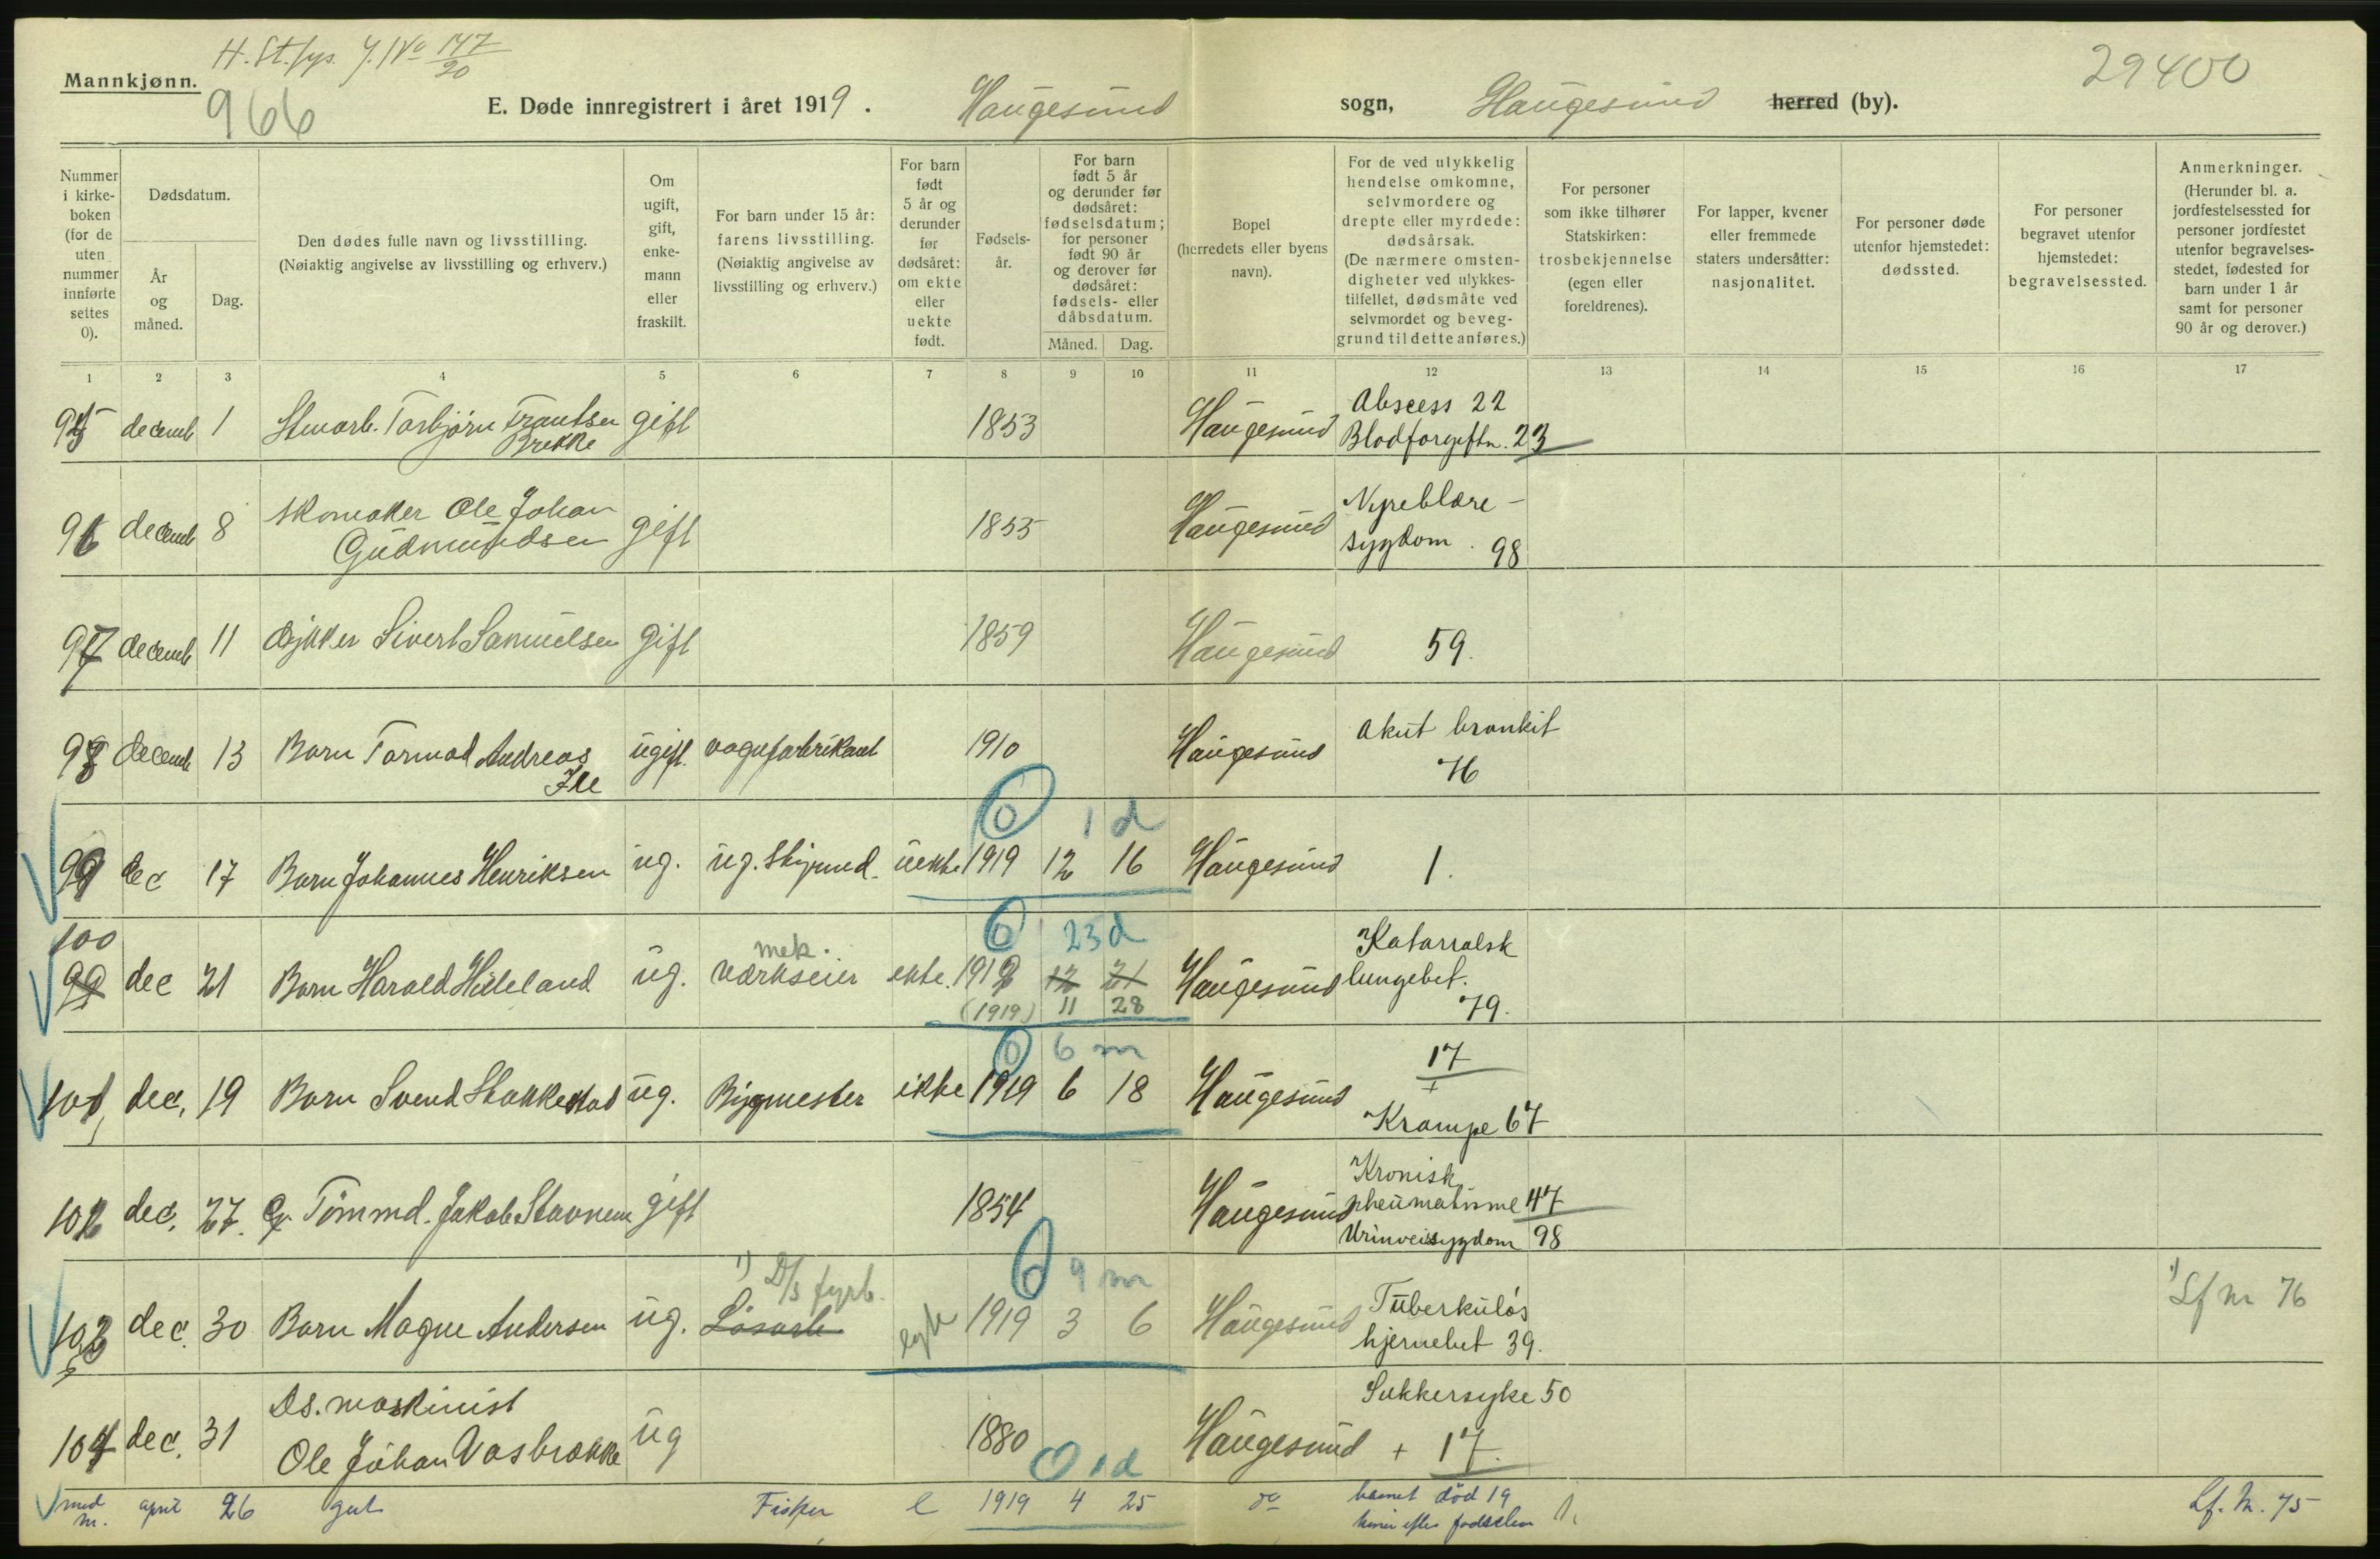 H. St. fys. J. No 147/20
29400
Mannkjønn.
966
E. Døde innregistrert i året 1919. Haugesund sogn, Haugesund herred (by).
Nummer i kirkeboken (for de uten nummer innførte settes 0).
Dødsdatum.
År og måned.
Dag.
Den dødes fulle navn og livsstilling. (Nøiaktig angivelse av livsstilling og erhverv.)
Om ugift, gift, enkemann eller fraskilt.
For barn under 15 år: farens livsstilling. (Nøiaktig angivelse av livsstilling og erhverv.)
For barn født 5 år og derunder før dødsåret: om ekte eller uekte født.
Fødselsår.
For barn født 5 år og derunder før dødsåret: fødselsdatum; for personer født 90 år og derover før dødsåret: fødsels- eller dåbsdatum.
Måned. Dag.
Bopel (herredets eller byens navn).
For de ved ulykkelig hendelse omkomne, selvmordere og drepte eller myrdede: dødsårsak. (De nærmere omstendigheter ved ulykkestilfellet, dødsmåte ved selvmordet og beveggrund til dette anføres.)
For personer som ikke tilhører Statskirken: trosbekjennelse (egen eller foreldrenes).
For lapper, kvener eller fremmede staters undersåtter: nasjonalitet.
For personer døde utenfor hjemstedet: dødssted.
For personer begravet utenfor hjemstedet: begravelsessted.
Anmerkninger. (Herunder bl. a. jordfestelsessted for personer jordfestet utenfor begravelsesstedet, fødested for barn under 1 år samt for personer 90 år og derover.)
1 2 3 4 5 6 7 8 9 10 11 12 13 14 15 16 17
95 decemb 1 Stuarb. Torbjørn Trautsen Brekke gift 1853 Haugesund Abscess 22
Blodforgiftn. 23
96 decemb 8 Skomaker Ole Johan Gudmundsen gift 1855 Haugesund Nyreblære-
sygdom. 98
97 decemb 11 Sivert Samuelsen gift 1859 Haugesund 59.
98 decemb 13 Barn Tormod Andreas ugift. vognfabrikant 1910 Haugesund Akut bronkit
76
0 1 d
99 dec 17 Barn Johannes Henriksen ug. ug. uekte 1919 12 16 Haugesund 1.
0 23 d
100
99 dec 21 Barn Harald Hilleland ug. mek. værkseier ekte. 1919 12 21 Haugesund Katarralsk
(1919) 11 28 lungebet.
79.
0 6 m
101 dec. 19 Barn Svend Stakkestad ug. Bygmester ekte 1919 6 18 Haugesund 17
+
Krampe 67
102 dec. 27. Tömmd. Jakob Stavnem gift 1854 Haugesund Kronisk
rheumatisme 47
Urinveissygdom 98
0 9 m
103 dec. 30 Barn Magne Andersen ug. 1) D/s fyrb. Løsarb egte 1919 3 6 Haugesund Tuberkuløs 1) Lf nr 76
hjernebet 39.
104 dec. 31 Ds. maskinist
Ole Johan Vasbrekke ug 1880 Haugesund Sukkersyke 50
+ 17.
0 1 d
med nr. april 26 gut Fisker e 1919 4 25 do barnet död 19
timer efter fødselen 1. Lf. Nr. 75